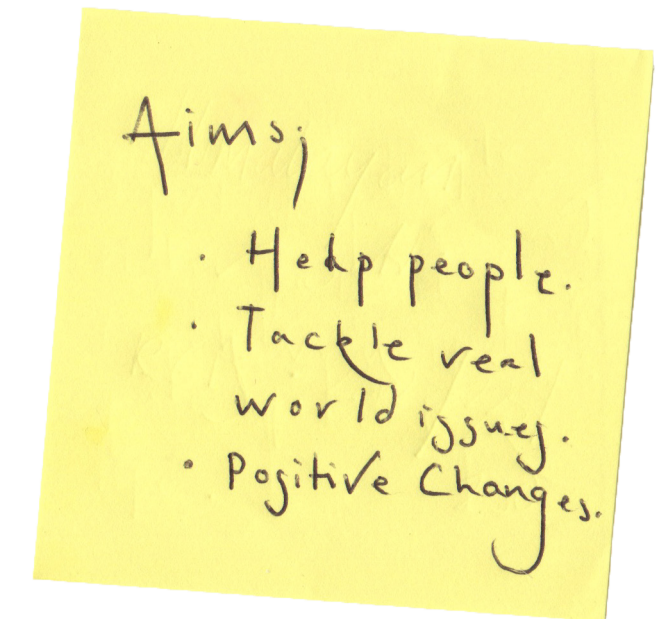 Aims;
· Help people.
· Tackle real
world issues.
· Positive Changes.